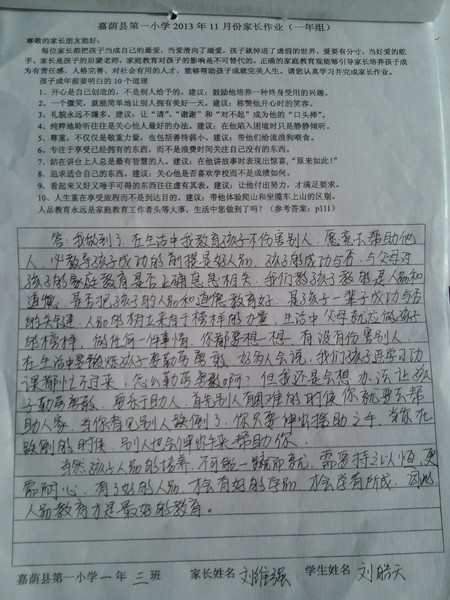 嘉荫县第一小学 2013 年 11 月份家长作业（一年组）
尊敬的家长朋友您好：
每位家长都把孩子当成自己的最爱，当爱滑向了溺爱，孩子就掉进了虚假的世界，爱要有分寸，当好爱的舵
手，家长是孩子的启蒙老师，家庭教育对孩子的影响是不可替代的。正确的家庭教育观能够引导家长培养孩子成
为有责任感、人格完善、对社会有用的人才，能够帮助孩子成就完美人生。请您认真学习并完成家长作业。
孩子成年前要明白的 10 个道理
1、开心是自己创造的，不是别人给予的。建议：鼓励他培养一种终身受用的兴趣。
2、一个微笑，就能简单地让别人拥有美好一天。建议：称赞他开心时的笑容。
3、礼貌永远不嫌多。建议：让“请、“谢谢”和“对不起”成为他的“口头禅”。
4、纯粹地聆听往往是关心他人最好的办法。建议：在他陷入困境时只是静静倾听。
5、尊重，不仅仅是敬重力量，也包括善待弱小。建议：带他们给流浪狗喂食。
6、专注于享受已经拥有的东西，而不是浪费时间关注自己没有的东西。
7、站在讲台上人总是最有智慧的人。建议：在他讲故事时表现出惊喜，“原来如此！”
8、追求适合自己的东西。建议：关心他是否喜欢学校而不是成绩如何。
9、看起来又好又唾手可得的东西往往虚有其表。建议：让他付出努力，才满足要求。
10、人生重在享受旅程而不是到达目的。建议：带他体验爬山和坐缆车上山的区别。
人品教育永远是家庭教育工作者头等大事，生活中您做到了吗？（参考答案：p111）
答：我做到了，在生活中我教育孩子不伤害别人，愿意去帮助他
人，以教导孩子成功的前提是好人品，孩子的成功与否，与父母对
孩子的家庭教育是否正确息息相关，我们教孩子教的是人品和
道德，是否把孩子的人品和道德教育好，是孩子一辈子成功与否
的关键，人品的树立来自于榜样的力量，生活中父母就应做孩子
的榜样，做任何一件事情，你都要想一想，有没有伤害别人，
在生活中要锻炼孩子要勤劳勇敢，好多人会说，我们孩子连学习功
课都忙不过来，怎么勤劳勇敢啊？但我还是会想办法让孩
子勤劳勇敢，要乐于助人，首先别人有困难的时候你就要去帮
助人家，当你看见别人跌倒了，你只要伸出援助之手，当你在
跌倒的时候，别人也会伸出手来帮助你。
当然孩子人品的培养，不可能一蹴而就，需要持之以恒，更
需耐心，有了好的人品，才会有好的学品，才会学有所成，因此，
人品教育才是最好的教育。
嘉荫县第一小学一年 三 班 家长姓名 刘维强 学生姓名 刘皓天